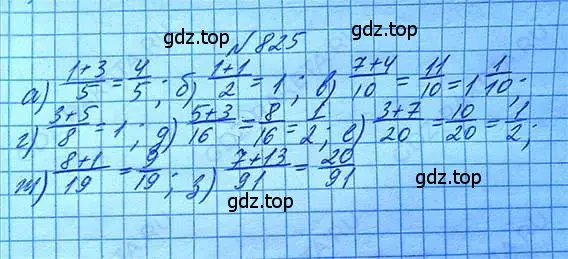 gdz.top gdz.top
№825
а) (1+3)/5 = 4/5; б) (1+1)/2 = 1; в) (7+4)/10 = 11/10 = 1 1/10;
г) (3+5)/8 = 1; д) (5+3)/16 = 8/16 = 1/2; е) (3+7)/20 = 10/20 = 1/2;
ж) (8+1)/19 = 9/19; з) (7+13)/91 = 20/91
gdz.top gdz.top